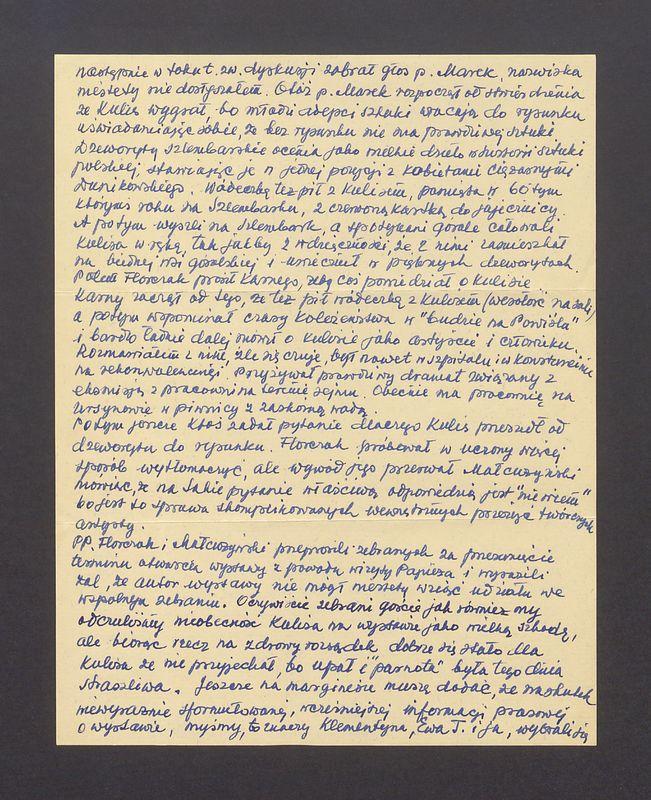 Następnie w toku t. zw. dyskusji zabrał głos p. Marek, nazwiska
niestety nie dosłyszałem. Otóż p. Marek rozpoczął od stwierdzenia
że Kulis wygrał, bo młodzi adepci sztuki wracają do rysunku
uświadamiając sobie, że bez rysunku nie ma prawdziwej sztuki.
Drzeworyty szlembarskie ocenia jako wielkie dzieło w historii sztuki
polskiej stawiając je w jednej pozycji z Kobietami Ciężarnymi
Dunikowskiego. Wódeczkę też pił z Kulisem, pamięta w 60tym
którymś roku na Szlembarku, z czerwoną kartką do jajecznicy.
A potym wyszli na Szlembark, a spotykani górale całowali
Kulisa w rękę, tak jakby z wdzięczności, że z nimi zamieszkał
na biednej wsi góralskiej i uwiecznił w pięknych drzeworytach.
Potem Florczak prosił Karnego, żeby coś powiedział o Kulisie
Karny zaczął od tego, że też pił wódeczkę z Kulisem (wesołość na sali)
a potym wspominał czasy koleżeństwa w "budzie na Powiślu"
i bardzo ładnie dalej mówił o Kulisie jako artyście i człowieku.
Rozmawiałem z nim, źle się czuje, był nawet w szpitalu i w Konstancinie
na rekonwalescencji. Przeżywał prawdziwy dramat związany z
eksmisją z pracowni na terenie sejmu. Obecnie ma pracownię na
Ursynowie w piwnicy z zaskorną wodą.
Potym jeszcze ktoś zadał pytanie dlaczego Kulis przeszedł od
drzeworytu do rysunku. Florczak próbował w uczony raczej
sposób wytłomaczyć, ale wywód jego przerwał Małcużyński
mówiąc, że na takie pytanie właściwą odpowiedzią jest "nie wiem"
bo jest to sprawa skomplikowanych wewnętrznych przeżyć twórczych
artysty.
PP. Florczak i Małcużyński przeprosili zebranych za przesunięcie
terminu otwarcia wystawy z powodu wizyty Papieża i wyrazili
żal, że autor wystawy nie mógł niestety wziąć udziału we
wspólnym zebraniu. Oczywiście zebrani goście jak również my
odczuliśmy nieobecność Kulisa na wystawie jako wielką szkodę,
ale biorąc rzecz na zdrowy rozsądek dobrze się stało dla
Kulisa że nie przyjechał, bo upał i "parnota" była tego dnia
straszliwa. Jeszcze na marginesie muszę dodać, że na skutek
niewyraźnie sformułowanej, wcześniejszej informacji prasowej
o wystawie, myśmy, to znaczy Klementyna, Ewa T. i ja, wybrali się